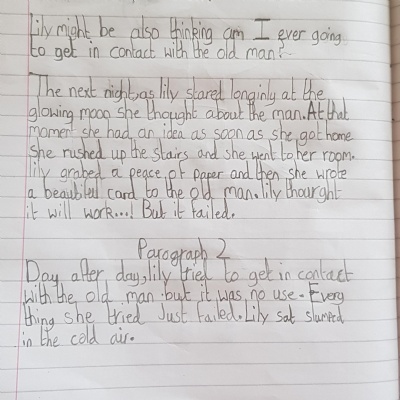 Lily might be also thinking am I ever going
to get in contact with the old man?
The next night, as lily stared longinly at the
glowing moon she thought about the man. At that
moment she had an idea as soon as she got home
she rushed up the stairs and she went to her room.
lily grabed a peace of paper and then she wrote
a beautiful card to the old man. lily thourght
it will work...! But it failed.
Paragraph 2
Day after day, lily tried to get in contact
with the old man but it was no use. Every
thing she tried Just failed. Lily sat slumped
in the cold air.